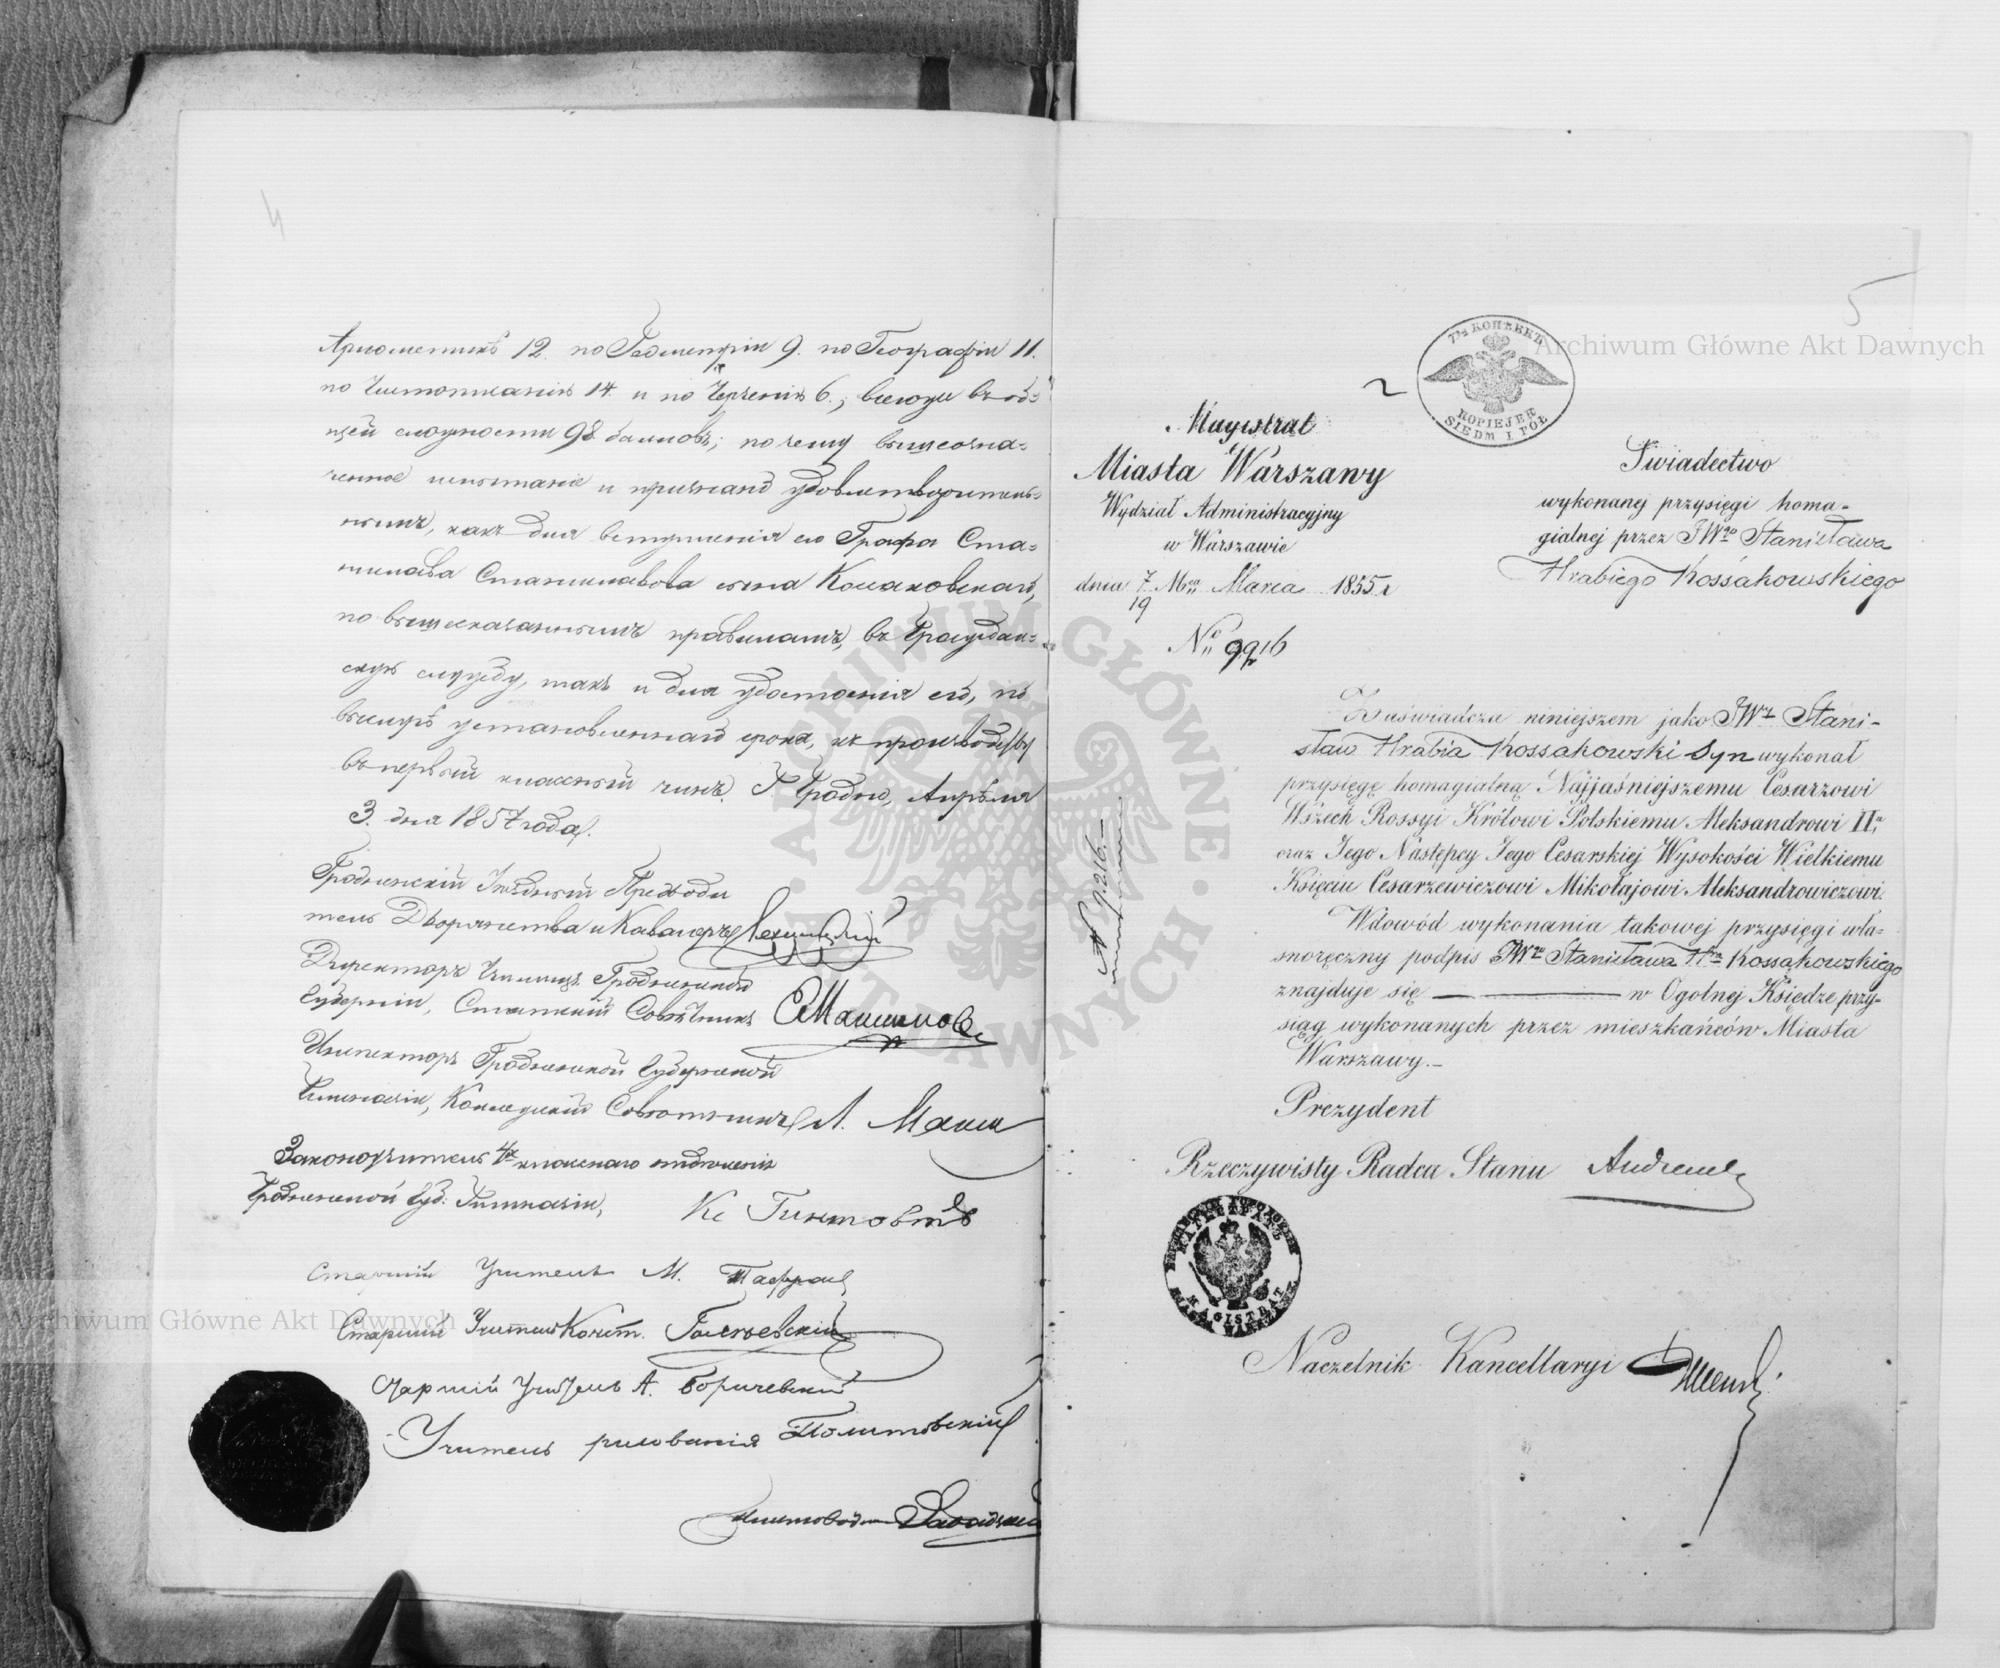 4
Ариѳметикѣ 12. по Геометріи 9. по Географіи 11.
по Чистописанію 14. и по Черченію 6., всего же въ об-
щей сложности 98 балловъ; почему вышеозна-
ченное испытаніе и признано удовлетворитель-
нымъ, какъ для вступленія его Графа Ста-
нислава Станиславова сына Коссаковскаго,
по вышесказаннымъ правиламъ, въ Граждан-
скую службу, такъ и для удостоенія его, по
выслугѣ установленнаго срока, къ производству
въ первый классный чинъ. Г. Гродно, Апрѣля
3. дня 1857 года.
Гродненскій Уѣздный Предводи
тель Дворянства и Кавалеръ
Директоръ Училищъ Гродненской
Губерніи, Статскій Совѣтникъ
Инспекторъ Гродненской Губернской
Гимназіи, Коллежскій Совѣтникъ
Законоучитель 4х класснаго
Гродненской Губ. Гимназіи,
Старшій Учитель М.
Старшій Учитель Конст.
Старшій Учитель А. Боричевскій
Учитель рисованія
5
7½ КОПѢЕКЪ
KOPIEJEK
SIEDM I PÓŁ
Magistrat
Miasta Warszawy
Wydział Administracyjny
w Warszawie
dnia 7/19 Mca Marca 1855 r
No 9216
Świadectwo
wykonanej przysięgi homa-
gialnej przez JWgo Stanisława
Hrabiego Kossakowskiego
Zaświadcza niniejszem jako JWny Stani-
sław Hrabia Kossakowski Syn wykonał
przysięgę homagialną Najjaśniejszemu Cesarzowi
Wszech Rossyi Królowi Polskiemu Aleksandrowi II,
oraz Jego Następcy Jego Cesarskiej Wysokości Wielkiemu
Księciu Cesarzewiczowi Mikołajowi Aleksandrowiczowi.
W dowód wykonania takowej przysięgi wła-
snoręczny podpis JWgo Stanisława Hr. Kossakowskiego
znajduje się — w Ogólnej Księdze przy-
siąg wykonanych przez mieszkańców Miasta
Warszawy.-
Prezydent
Rzeczywisty Radca Stanu
МАГИСТРАТЪ
MAGISTRAT
Naczelnik Kancellaryi
N 9216
Archiwum Główne Akt Dawnych
Archiwum Główne Akt Dawnych
ARCHIWUM GŁÓWNE AKT DAWNYCH